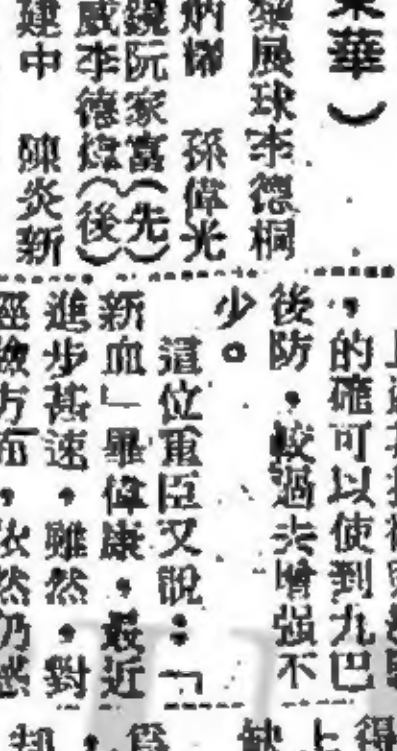 東華）
黎展球李德桐
炳耀　孫偉光
鏡阮家富（先）
威李德煒（後）
建中　陳炎新
，的確可以使到九巴
後防，較過去增强不
少。
這位重臣又說：「
新血」畢偉康，最近
進步甚速，雖然，對
經驗方面，依然仍感
得
上
缺
爲
，
却